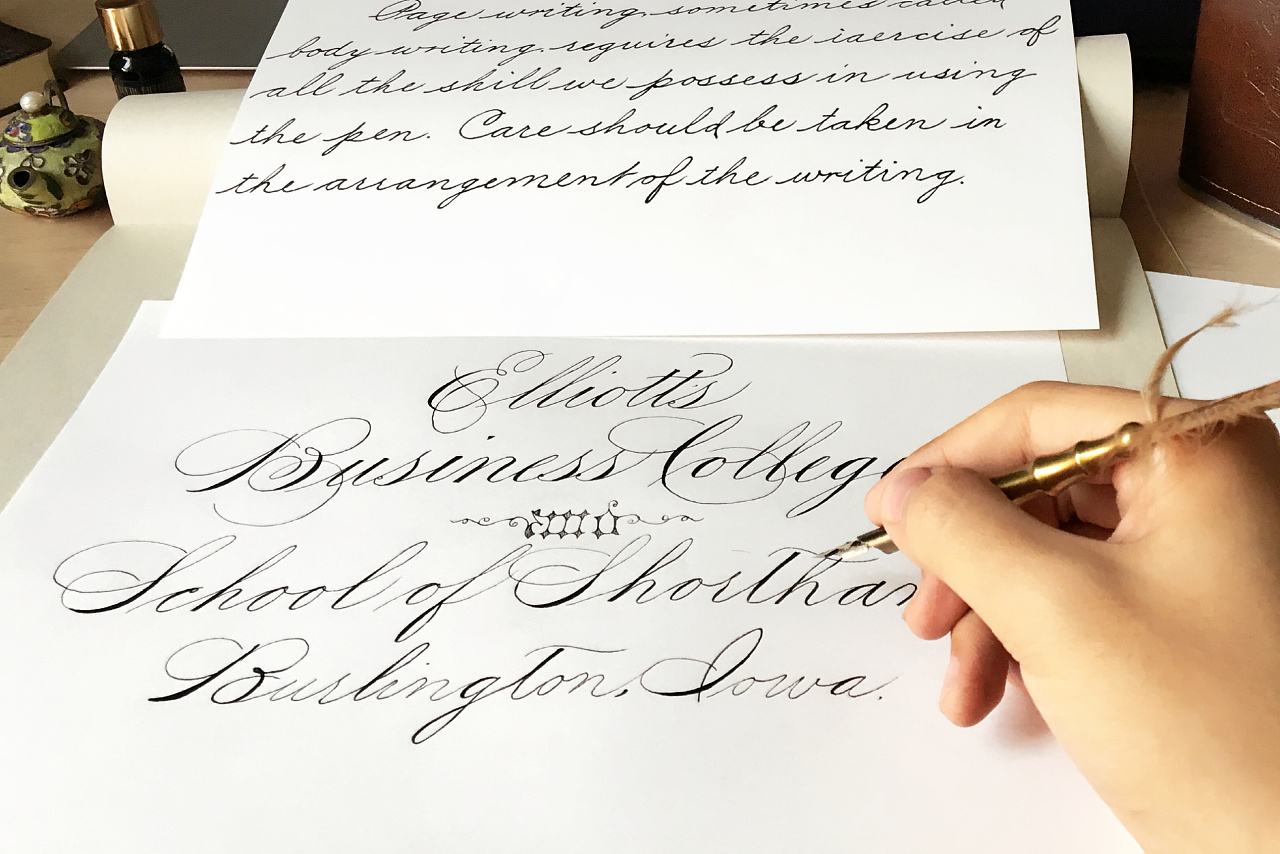 Page writing, sometimes called
body writing, requires the iaercise of
all the skill we possess in using
the pen. Care should be taken in
the arrangement of the writing.
Elliott's
Business College
and
School of Shorthan
Burlington, Iowa.